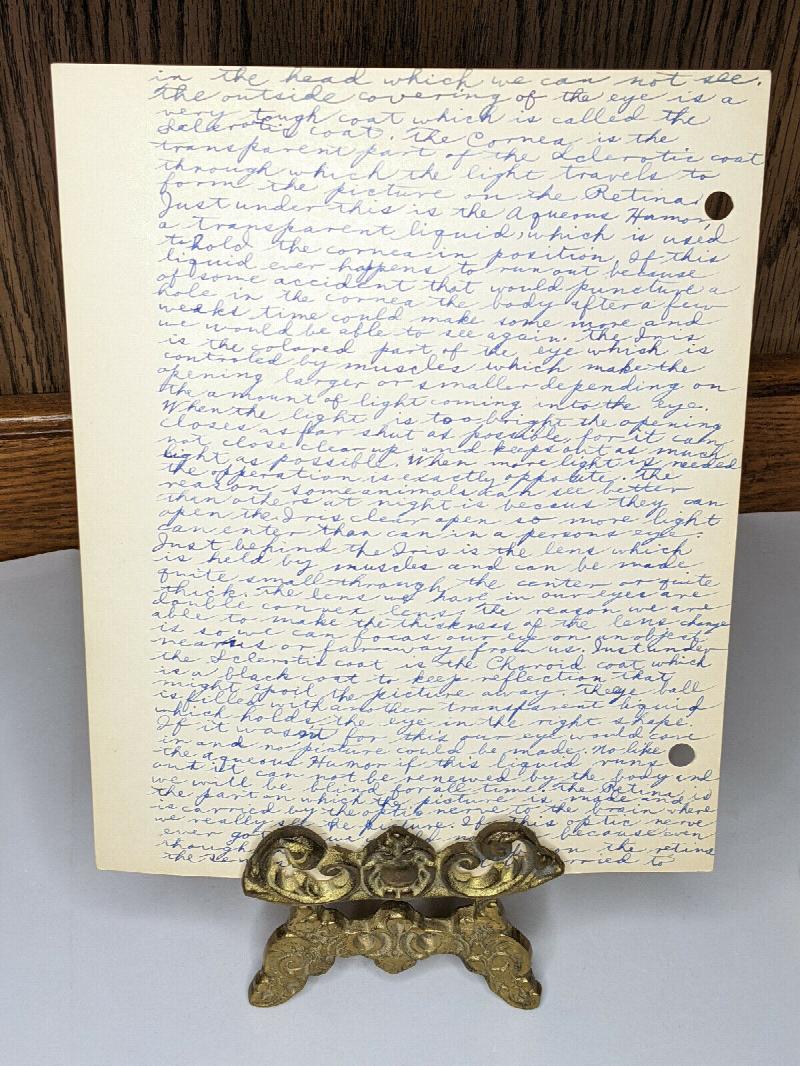 in the head which we can not see.
The outside covering of the eye is a
very tough coat which is called the
Sclerotic coat. The Cornea is the
transparent part of the Sclerotic coat
through which the light travels to
form the picture on the Retina.
Just under this is the Aqueous Humor,
a transparent liquid, which is used
to hold the cornea in position. If this
liquid ever happens to run out because
of some accident that would puncture a
hole in the cornea the body after a few
weaks time could make some more and
we would be able to see again. The Iris
is the colored part of the eye which is
controled by muscles which make the
opening larger or smaller depending on
the amount of light coming into the eye.
When the light is too bright the opening
closes as far shut as possible, for it can
not close clear up and keeps out as much
light as possible. When more light is needed
the opperation is exactly opposite. The
reason some animals can see better
than others at night is becaus they can
open the Iris clear open so more light
can enter than can in a persons eye.
Just behind the Iris is the lens which
is held by muscles and can be made
quite small through the center or quite
thick. The lens we have in our eyes are
double convex lens, the reason we are
able to make the thickness of the lens change
is so we can focas our eye on an object
near us or far away from us. Just under
the Sclerotic coat is the Charoid coat which
is a black coat to keep reflection that
might spoil the picture away. The eye ball
is filled with another transparent liquid
which holds the eye in the right shape.
If it wasnt for this our eye would cave
in and no picture could be made. No like
the aqueous Humor if this liquid runs
out it can not be renewed by the body and
we will be blind for all time. The Retina is
the part on which the picture is made and
is carried by the optic nerve to the brain where
we really see the picture. If this optic nerve
ever got we because even
though on the retina
the sen carried to